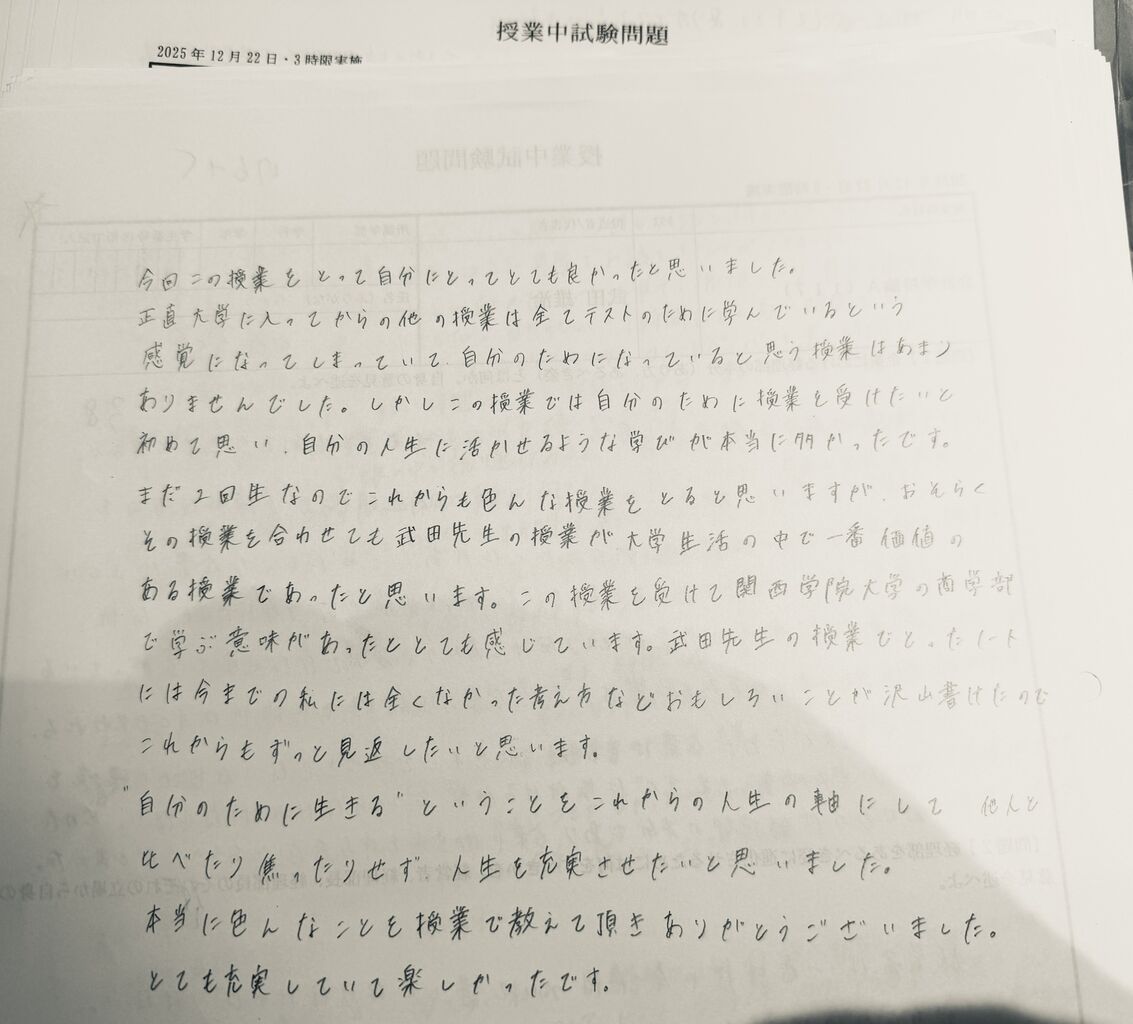 授業中試験問題
2025年12月22日・3時限実施
今回この授業をとって自分にとってとても良かったと思いました。
正直大学に入ってからの他の授業は全てテストのために学んでいるという
感覚になってしまっていて、自分のためになっていると思う授業はあまり
ありませんでした。しかしこの授業では自分のために授業を受けたいと
初めて思い、自分の人生に活かせるような学びが本当に多かったです。
まだ2回生なのでこれからも色んな授業をとると思いますが、おそらく
その授業を合わせても武田先生の授業が大学生活の中で一番価値の
ある授業であったと思います。この授業を受けて関西学院大学の商学部
で学ぶ意味があったととても感じています。武田先生の授業でとったノート
には今までの私には全くなかった考え方などおもしろいことが沢山書けたので
これからもずっと見返したいと思います。
"自分のために生きる"ということをこれからの人生の軸にして 他人と
比べたり焦ったりせず、人生を充実させたいと思いました。
本当に色んなことを授業で教えて頂きありがとうございました。
とても充実していて楽しかったです。